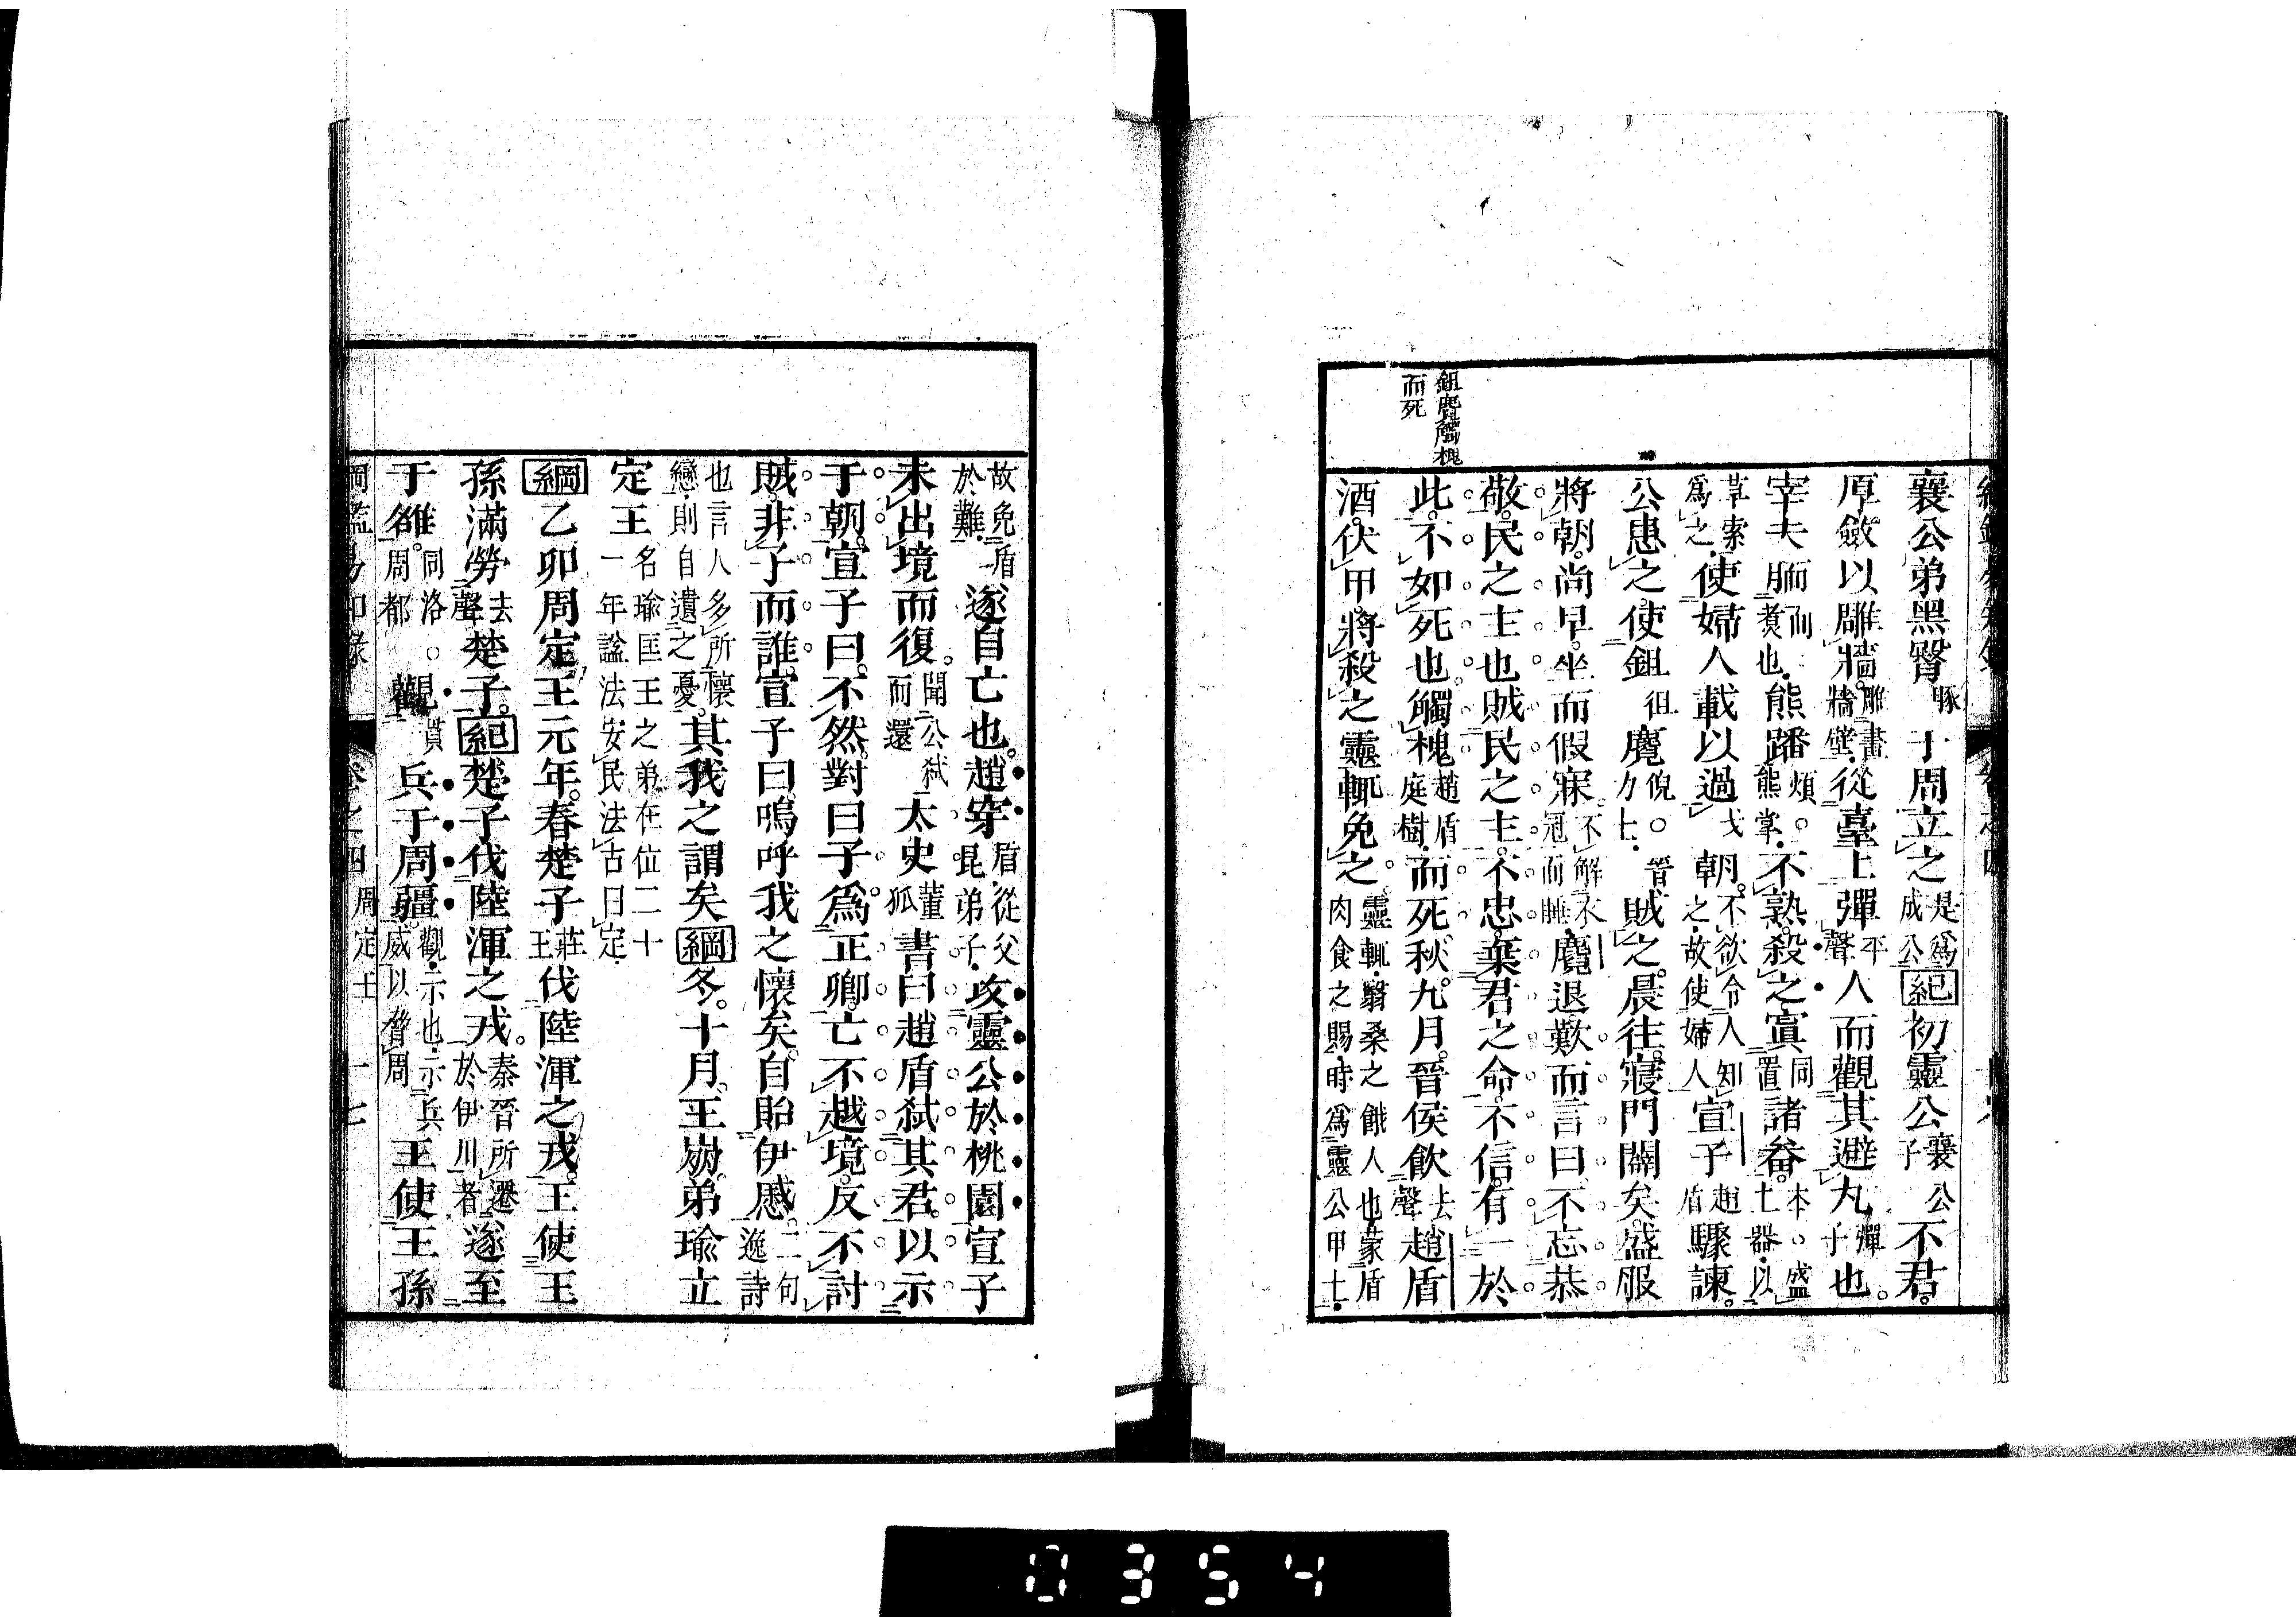 鉏麑觸槐
而死
襄公弟黑臀豚于周立之是爲成公紀初靈公襄公子不君
厚斂以雕牆雕畫牆壁從臺上彈平聲人而觀其避丸彈子也
宰夫胹而煮也熊蹯煩熊掌不熟殺之寘同置諸畚本盛土器以
草索爲之使婦人載以過戈朝不欲令人知之故使婦人宣子趙盾驟諫
公患之使鉏徂麑倪力士晉賊之晨往寢門闢矣盛服
將朝尚早坐而假寐不解衣冠而睡麑退歎而言曰不忘恭
敬民之主也賊民之主不忠棄君之命不信有一於
此不如死也觸槐趙盾庭樹而死秋九月晉侯飲去聲趙盾
酒伏甲將殺之靈輒免之靈輒翳桑之餓人也蒙盾肉食之賜時爲靈公甲士
故免盾於難遂自亡也趙穿盾從父昆弟子攻靈公於桃園宣子
未出境而復聞公弒而還太史董狐書曰趙盾弒其君以示
于朝宣子曰不然對曰子爲正卿亡不越境反不討
賊非子而誰宣子曰嗚呼我之懷矣自貽伊慼二句逸詩
也言人多所懷戀則自遺之憂其我之謂矣綱冬十月王崩弟瑜立
定王名瑜匡王之弟在位二十一年諡法安民法古曰定
綱乙卯周定王元年春楚子莊王伐陸渾之戎王使王
孫滿勞去聲楚子紀楚子伐陸渾之戎秦晉所遷於伊川者遂至
于雒同洛周都觀貫兵于周疆觀示也示兵威以脅周王使王孫
綱鑑易知錄 卷之四 周定王 十七
0354